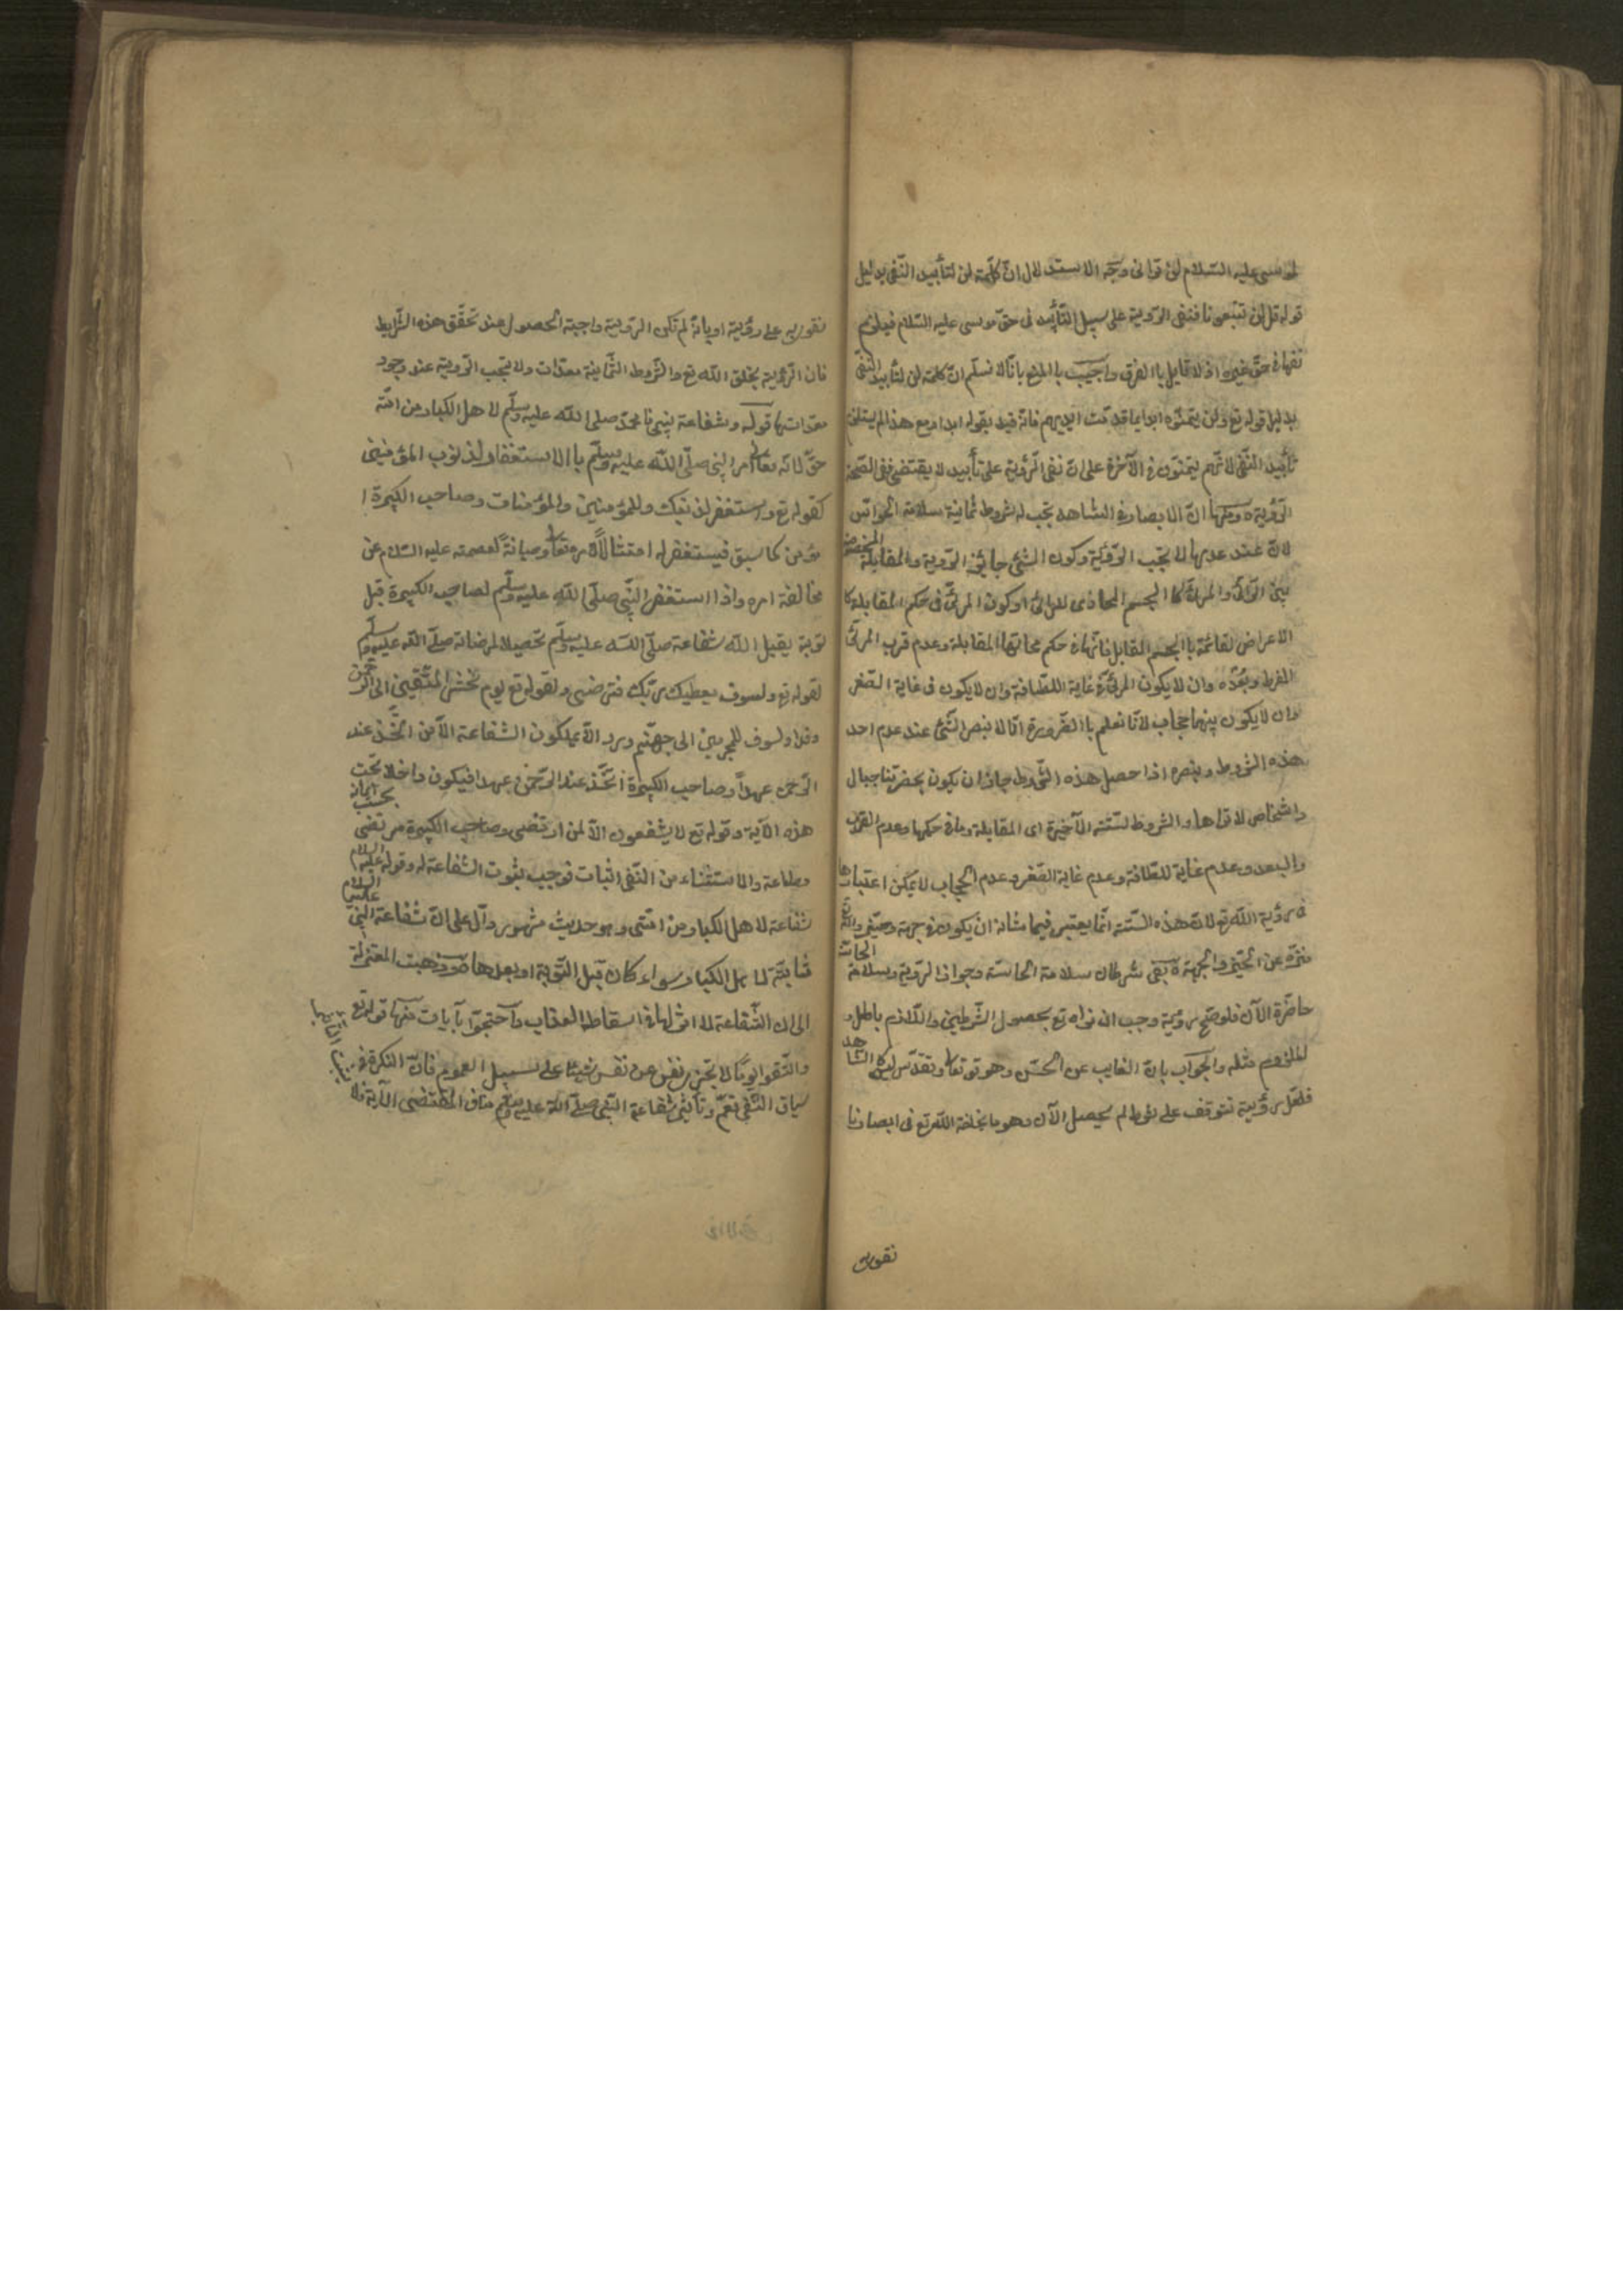 لموسى عليه السّلام لن تراني وجه الاستدلال انّ كلمة لن لتأبيد النّفى بدليل
قوله قل لن تتبعونا فنفى الروية على سبيل التّأبيد في حقّ موسى عليه السّلام فيلزم
نفيها في حقّ غيره اذ لا قايل باالفرق واجيب باالمنع بانّا لا نسلّم انّ كلمة لن لتأبيد النّفى
بدليل قوله تع ولن يتمنّوه ابدا بما قدّمت ايديهم فانّه قيد بقوله ابدا ومع هذا لم يستلزم
تأبيد النّفى لانّهم يتمنّون في الآخرة على انّ نفى الرّؤية على تأبيد لا يقتضى نفى الصّحة
الرّؤية ومنها انّ الابصار في الشاهد يجب له شروط ثمانية سلامة الحواسّ
لانّ عند عدمها لا يجب الرّؤية وكون الشئ جايز الرّوية والمقابلة المخصوصة
بين الرّائى والمرئى كا الجسم المحاذى للرائى او كون المرئى في حكم المقابلة كا
الاعراض القائمة باالجسم المقابل فانّها في حكم محالّها المقابلة وعدم قرب المرئى
المفرط وبعده وان لا يكون المرئى في غاية اللطافة وان لا يكون في غاية الصّغر
وان لا يكون بينهما حجاب لانّا نعلم باالضّرورة انّا لا نبصر الشّئ عند عدم احد
هذه الشروط ونبصره اذا حصل هذه الشّروط جاز ان يكون بحضرتنا جبال
واشخاص لا نراها والشروط السّتة الآخيرة اى المقابلة وما في حكمها وعدم القرب
والبعد وعدم غاية اللطافة وعدم غاية الصّغر وعدم الحجاب لا يمكن اعتبارها
في رؤية اللّه تع لانّ هذه السّتة انّما يعتبر فيما شانه ان يكون في جهة وحيّز واللّه تع
منزّه عن الحيّز والجهة بقى شرطان سلامة الحاسّة وجواز الرّؤية وسلامة الحاسّة
حاضرة الآن فلو صحّ رؤية وجب ان نراه تع بحصول الشّرطين واللّازم باطل و
الملزوم مثله والجواب بانّ الغايب عن الحسّ وهو تعالى وتقدّس ليس كالشاهد
فلعلّ رؤية تتوقف على شرط لم يحصل الآن وهو ما يخلقه اللّه تع في ابصارنا
نقوى به
نقوى به على رؤية او بانّه لم تكن الرّؤية واجبة الحصول عند تحقّق هذه الشّرايط
فان الرّؤية بخلق اللّه تع والشّروط الثّمانية معدّات ولا يجب الرّؤية عند وجود
معدّاتها قوله وشفاعة نبيّنا محمّد صلى اللّه عليه وسلّم لاهل الكبار من امّته
حقّ لانّه تعالى امر النبى صلّى اللّه عليه وسلّم باالاستغفار لذنوب المؤمنين
كقوله تع واستغفر لذنبك وللمؤمنين والمؤمنات وصاحب الكبيرة
مؤمن كما سبق فيستغفر له امتثالا لامره تعالى وصيانة لعصمته عليه السّلام عن
مخالفة امره واذا استغفر النّبى صلّى اللّه عليه وسلّم لصاحب الكبيرة قبل
توبة يقبل اللّه شفاعة صلّى اللّه عليه وسلّم تحصيلا لمرضاته صلّى اللّه عليه وسلّم
لقوله تع ولسوف يعطيك ربّك فترضى ولقوله تع يوم نحشر المتّقين الى الرّحمن
وفدا ولسوف المجرمين الى جهنّم وردا لا يملكون الشفاعة الّا من اتّخذ عند
الرّحمن عهدا وصاحب الكبيرة اتّخذ عند الرّحمن عهدا فيكون داخلا تحت
هذه الآية وقوله تع لا يشفعون الّا لمن ارتضى وصاحب الكبيرة مرتضى بحسب ايمانه
وطاعة والاستثناء من النّفى اثبات فوجب ثبوت الشّفاعة له وقوله عليه السلام
شفاعة لاهل الكبار من امّتى وهو حديث مشهور دالّ على انّ شفاعة النبىّ عليه السلام
ثابتة لاهل الكبار سواء كان قبل التّوبة او بعدها وذهبت المعتزلة
الى ان الشّفاعة لا اثر لها في اسقاط العذاب واحتجّوا بآيات منها قوله تع
واتّقوا يوما لا تجزى نفس عن نفس شيئا على سبيل العموم فانّ النكرة في
سياق النّفى تعمّ وتأثير شفاعة النّبى صلّى اللّه عليه وسلّم مناف لمقتضى الآية فلا